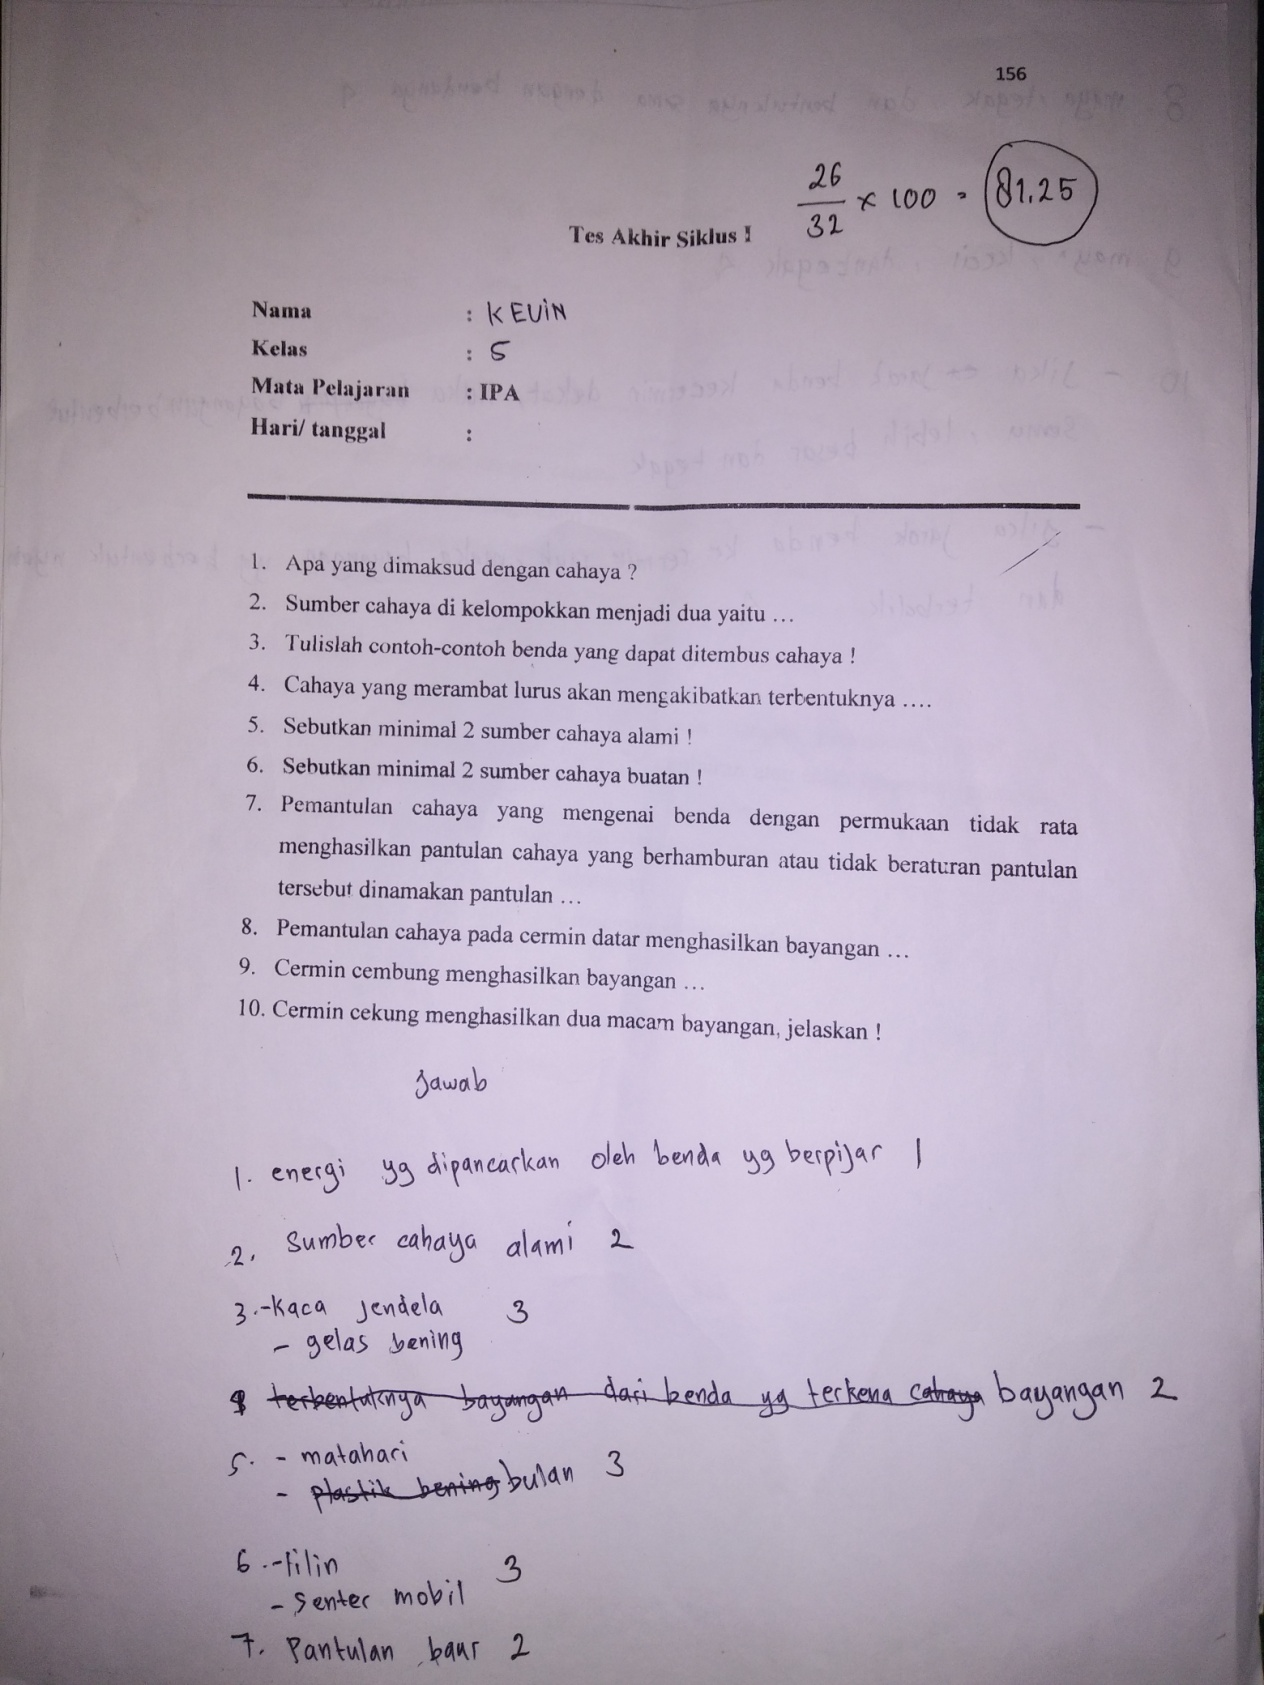 156
26
32
× 100 = 81,25
Tes Akhir Siklus I
Nama : KEVIN
Kelas : 5
Mata Pelajaran : IPA
Hari/ tanggal :
1. Apa yang dimaksud dengan cahaya ?
2. Sumber cahaya di kelompokkan menjadi dua yaitu …
3. Tulislah contoh-contoh benda yang dapat ditembus cahaya !
4. Cahaya yang merambat lurus akan mengakibatkan terbentuknya ….
5. Sebutkan minimal 2 sumber cahaya alami !
6. Sebutkan minimal 2 sumber cahaya buatan !
7. Pemantulan cahaya yang mengenai benda dengan permukaan tidak rata
menghasilkan pantulan cahaya yang berhamburan atau tidak beraturan pantulan
tersebut dinamakan pantulan …
8. Pemantulan cahaya pada cermin datar menghasilkan bayangan …
9. Cermin cembung menghasilkan bayangan …
10. Cermin cekung menghasilkan dua macam bayangan, jelaskan !
Jawab
1. energi yg dipancarkan oleh benda yg berpijar 1
2. Sumber cahaya alami 2
3.-Kaca jendela 3
- gelas bening
4 terbentuknya bayangan dari benda yg terkena cahaya bayangan 2
5. - matahari
- plastik bening bulan 3
6.-lilin 3
- Senter mobil
7. Pantulan baur 2